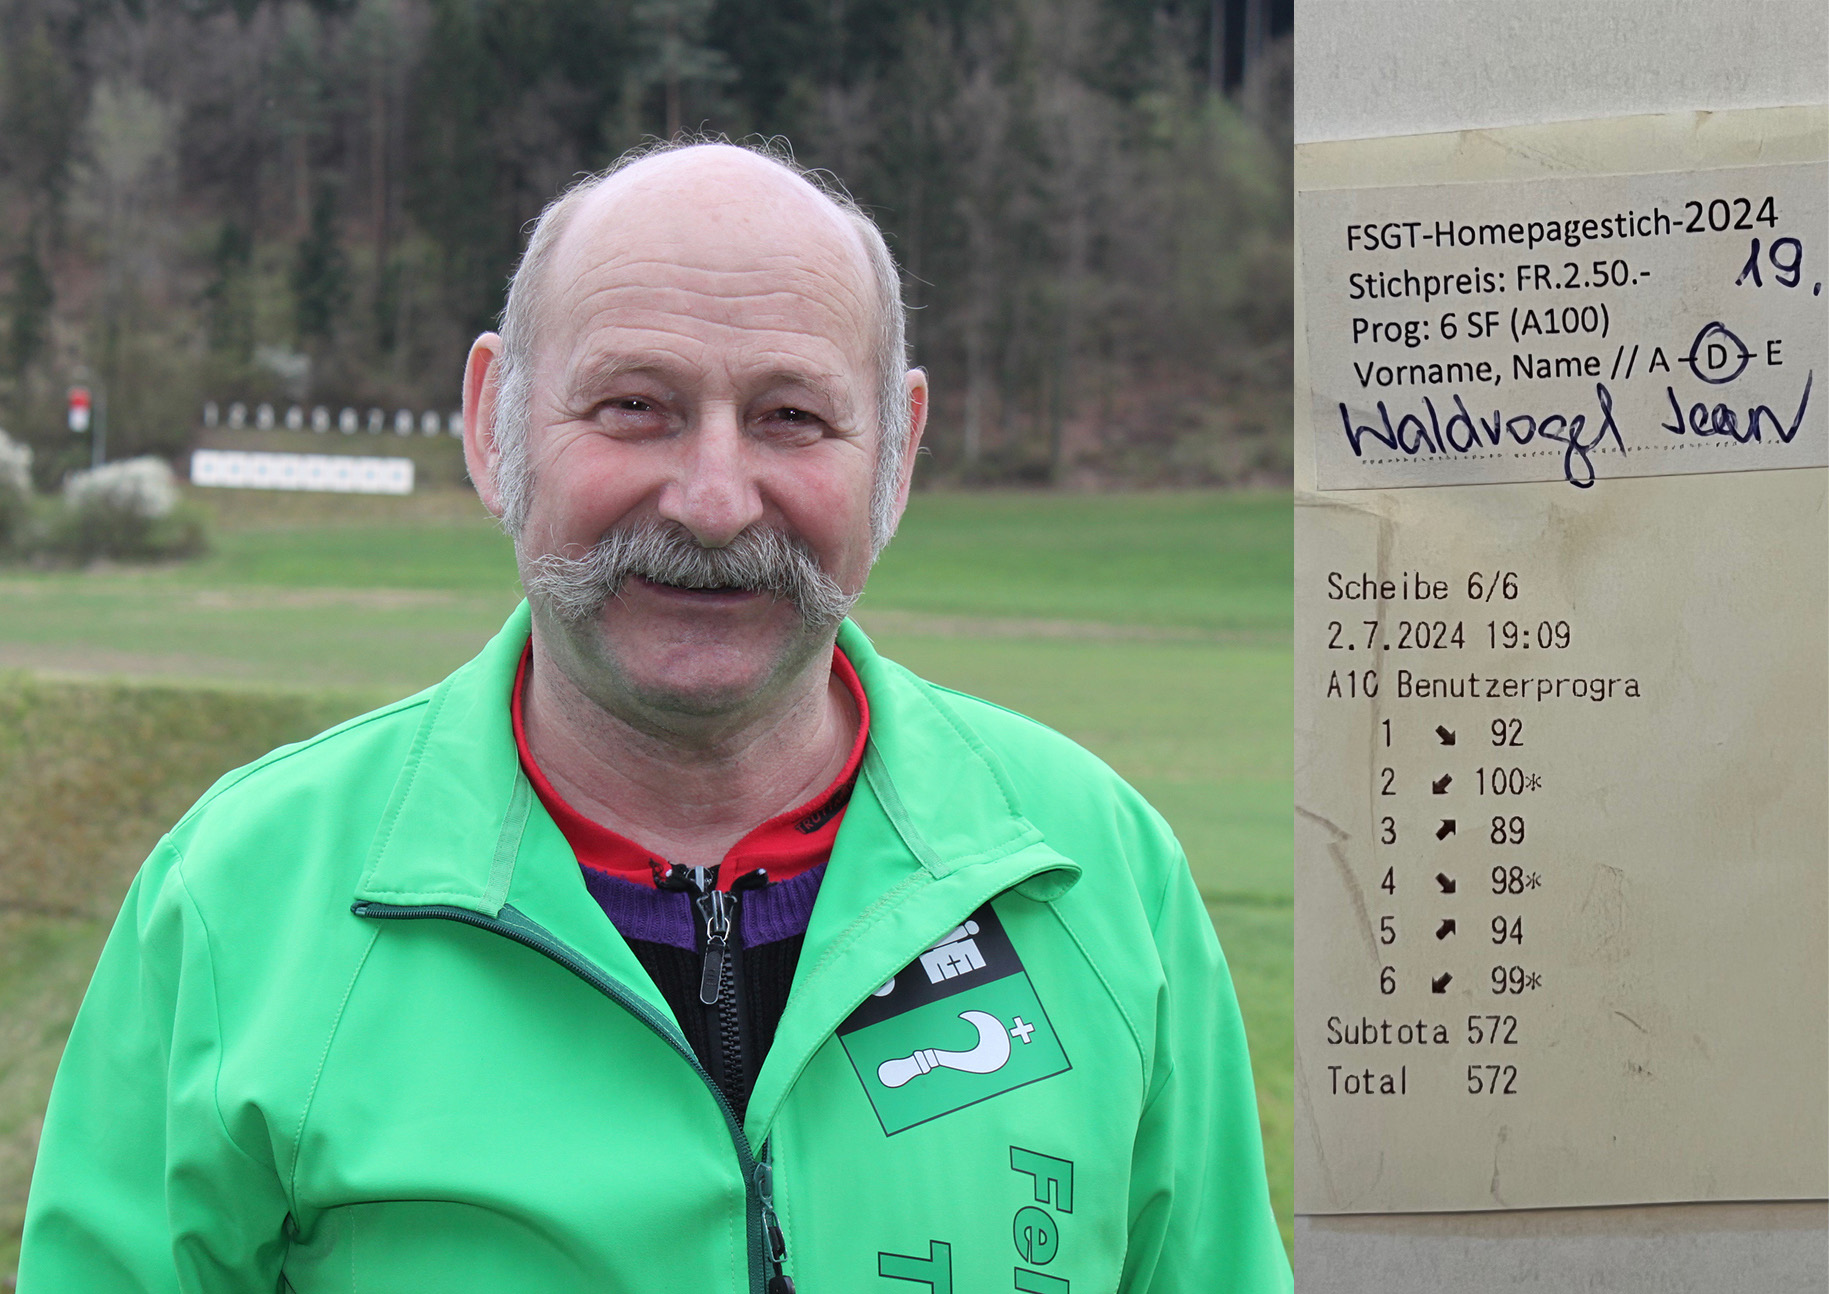 1 2 3 4 5 6 7 8
Fel
T
FSGT-Homepagestich-2024
Stichpreis: FR.2.50.- 19.
Prog: 6 SF (A100)
Vorname, Name // A - D - E
Waldvogel Jean
Scheibe 6/6
2.7.2024 19:09
A10 Benutzerprogra
1 ↘ 92
2 ↙ 100*
3 ↗ 89
4 ↘ 98*
5 ↗ 94
6 ↙ 99*
Subtota 572
Total 572